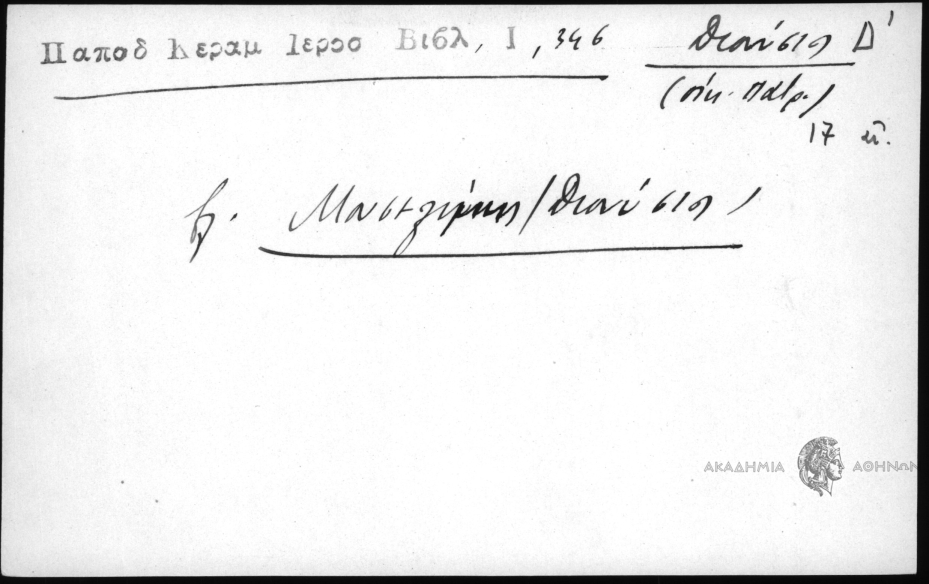 Παπαδ Κεραμ Ιεροσ Βιβλ, Ι, 346
Διονύσιος Δ'
(οἰκ. Πατρ.)
17 αἰ.
βλ. Μουσελίμης (Διονύσιος)
ΑΚΑΔΗΜΙΑ ΑΘΗΝΩΝ